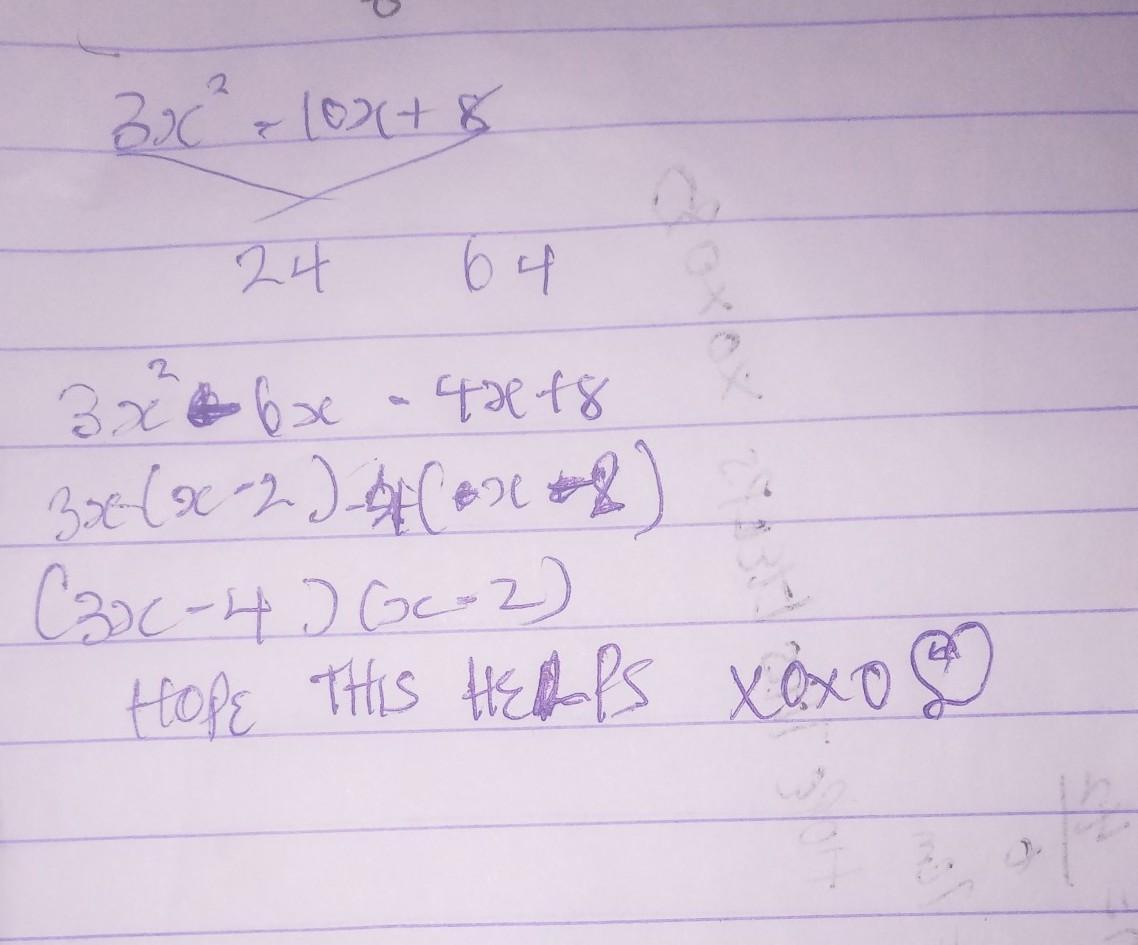 3x² - 10x + 8
24 64
3x² - 6x - 4x + 8
3x(x-2) -4(x-2)
(3x-4)(x-2)
HOPE THIS HELPS XOXO